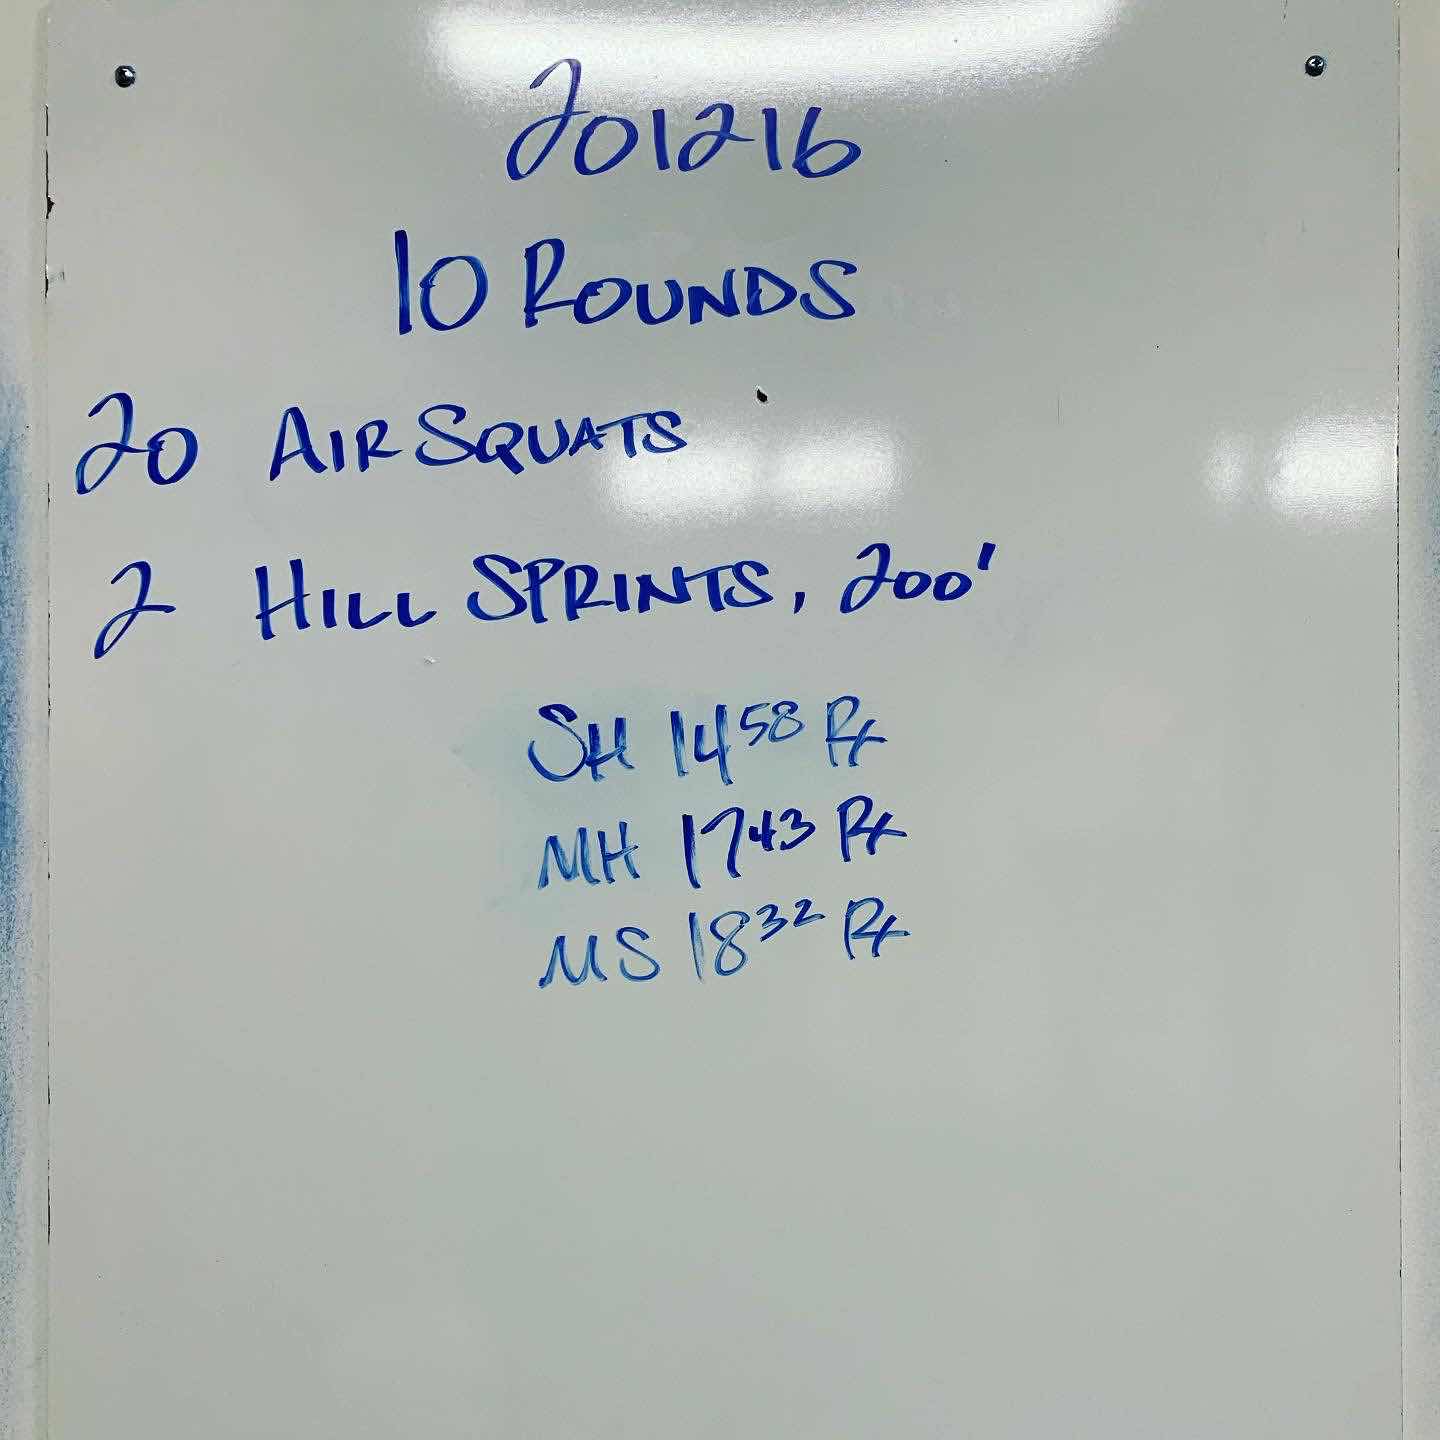 201216
10 ROUNDS
20 AIR SQUATS
2 HILL SPRINTS, 200'
SH 14 58 Rx
MH 17 43 Rx
MS 18 32 Rx